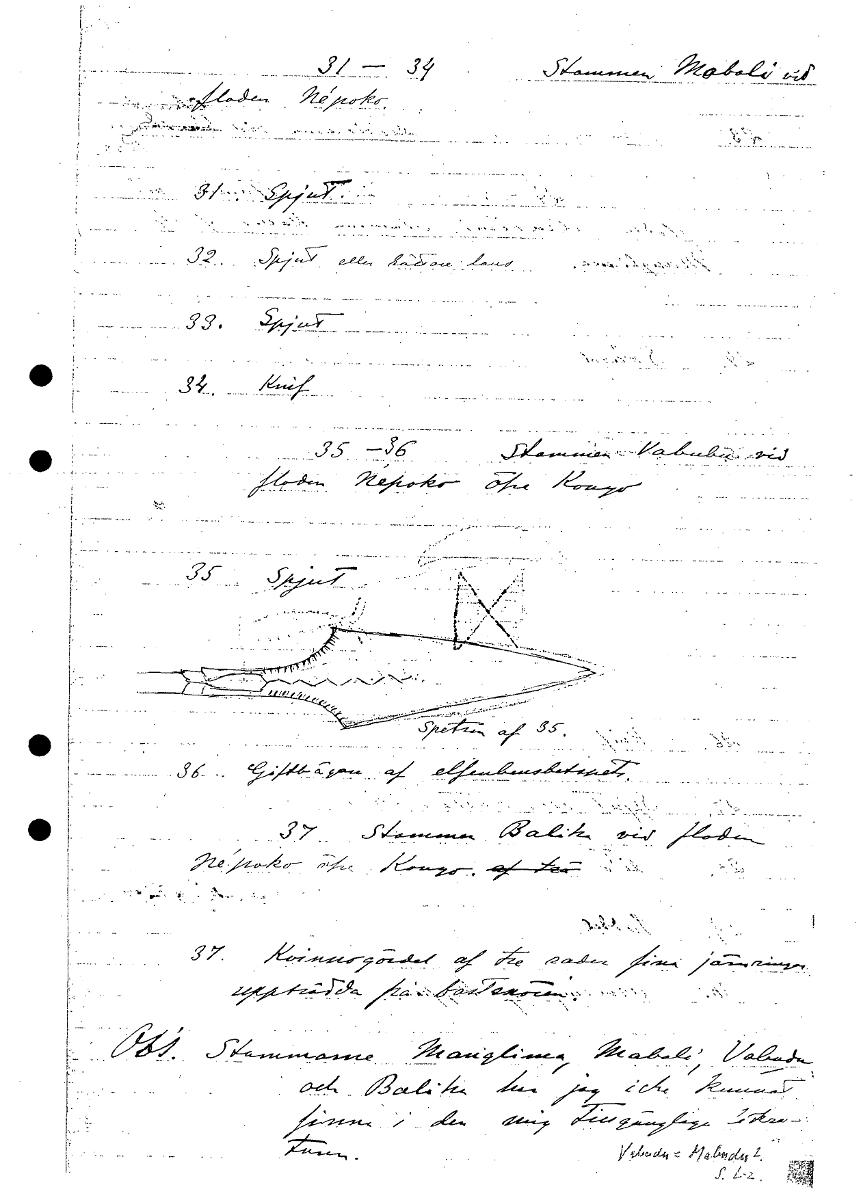 31 — 34 Stammen Mabali vid
floden Népoko.
31. Spjut.
32 Spjut eller lans
33. Spjut
34. Knif
35 - 36 Stammen Vabudu vid
floden Népoko öfre Kongo
35 Spjut
Spetsen af 35.
36. af elfenbensbetsnets.
37 Stammen Balika vid floden
Népoko öfre Kongo. af trä
37. Kvinnogördel af tre rader fina järnringar
uppträdda på bastsnören.
Obs. Stammarne Manglima, Mabali, Vabudu
och Balika har jag icke kunnat
finna i den mig tillgängliga littera-
turen.
Vabudu = Mabudu?
S. L-z.